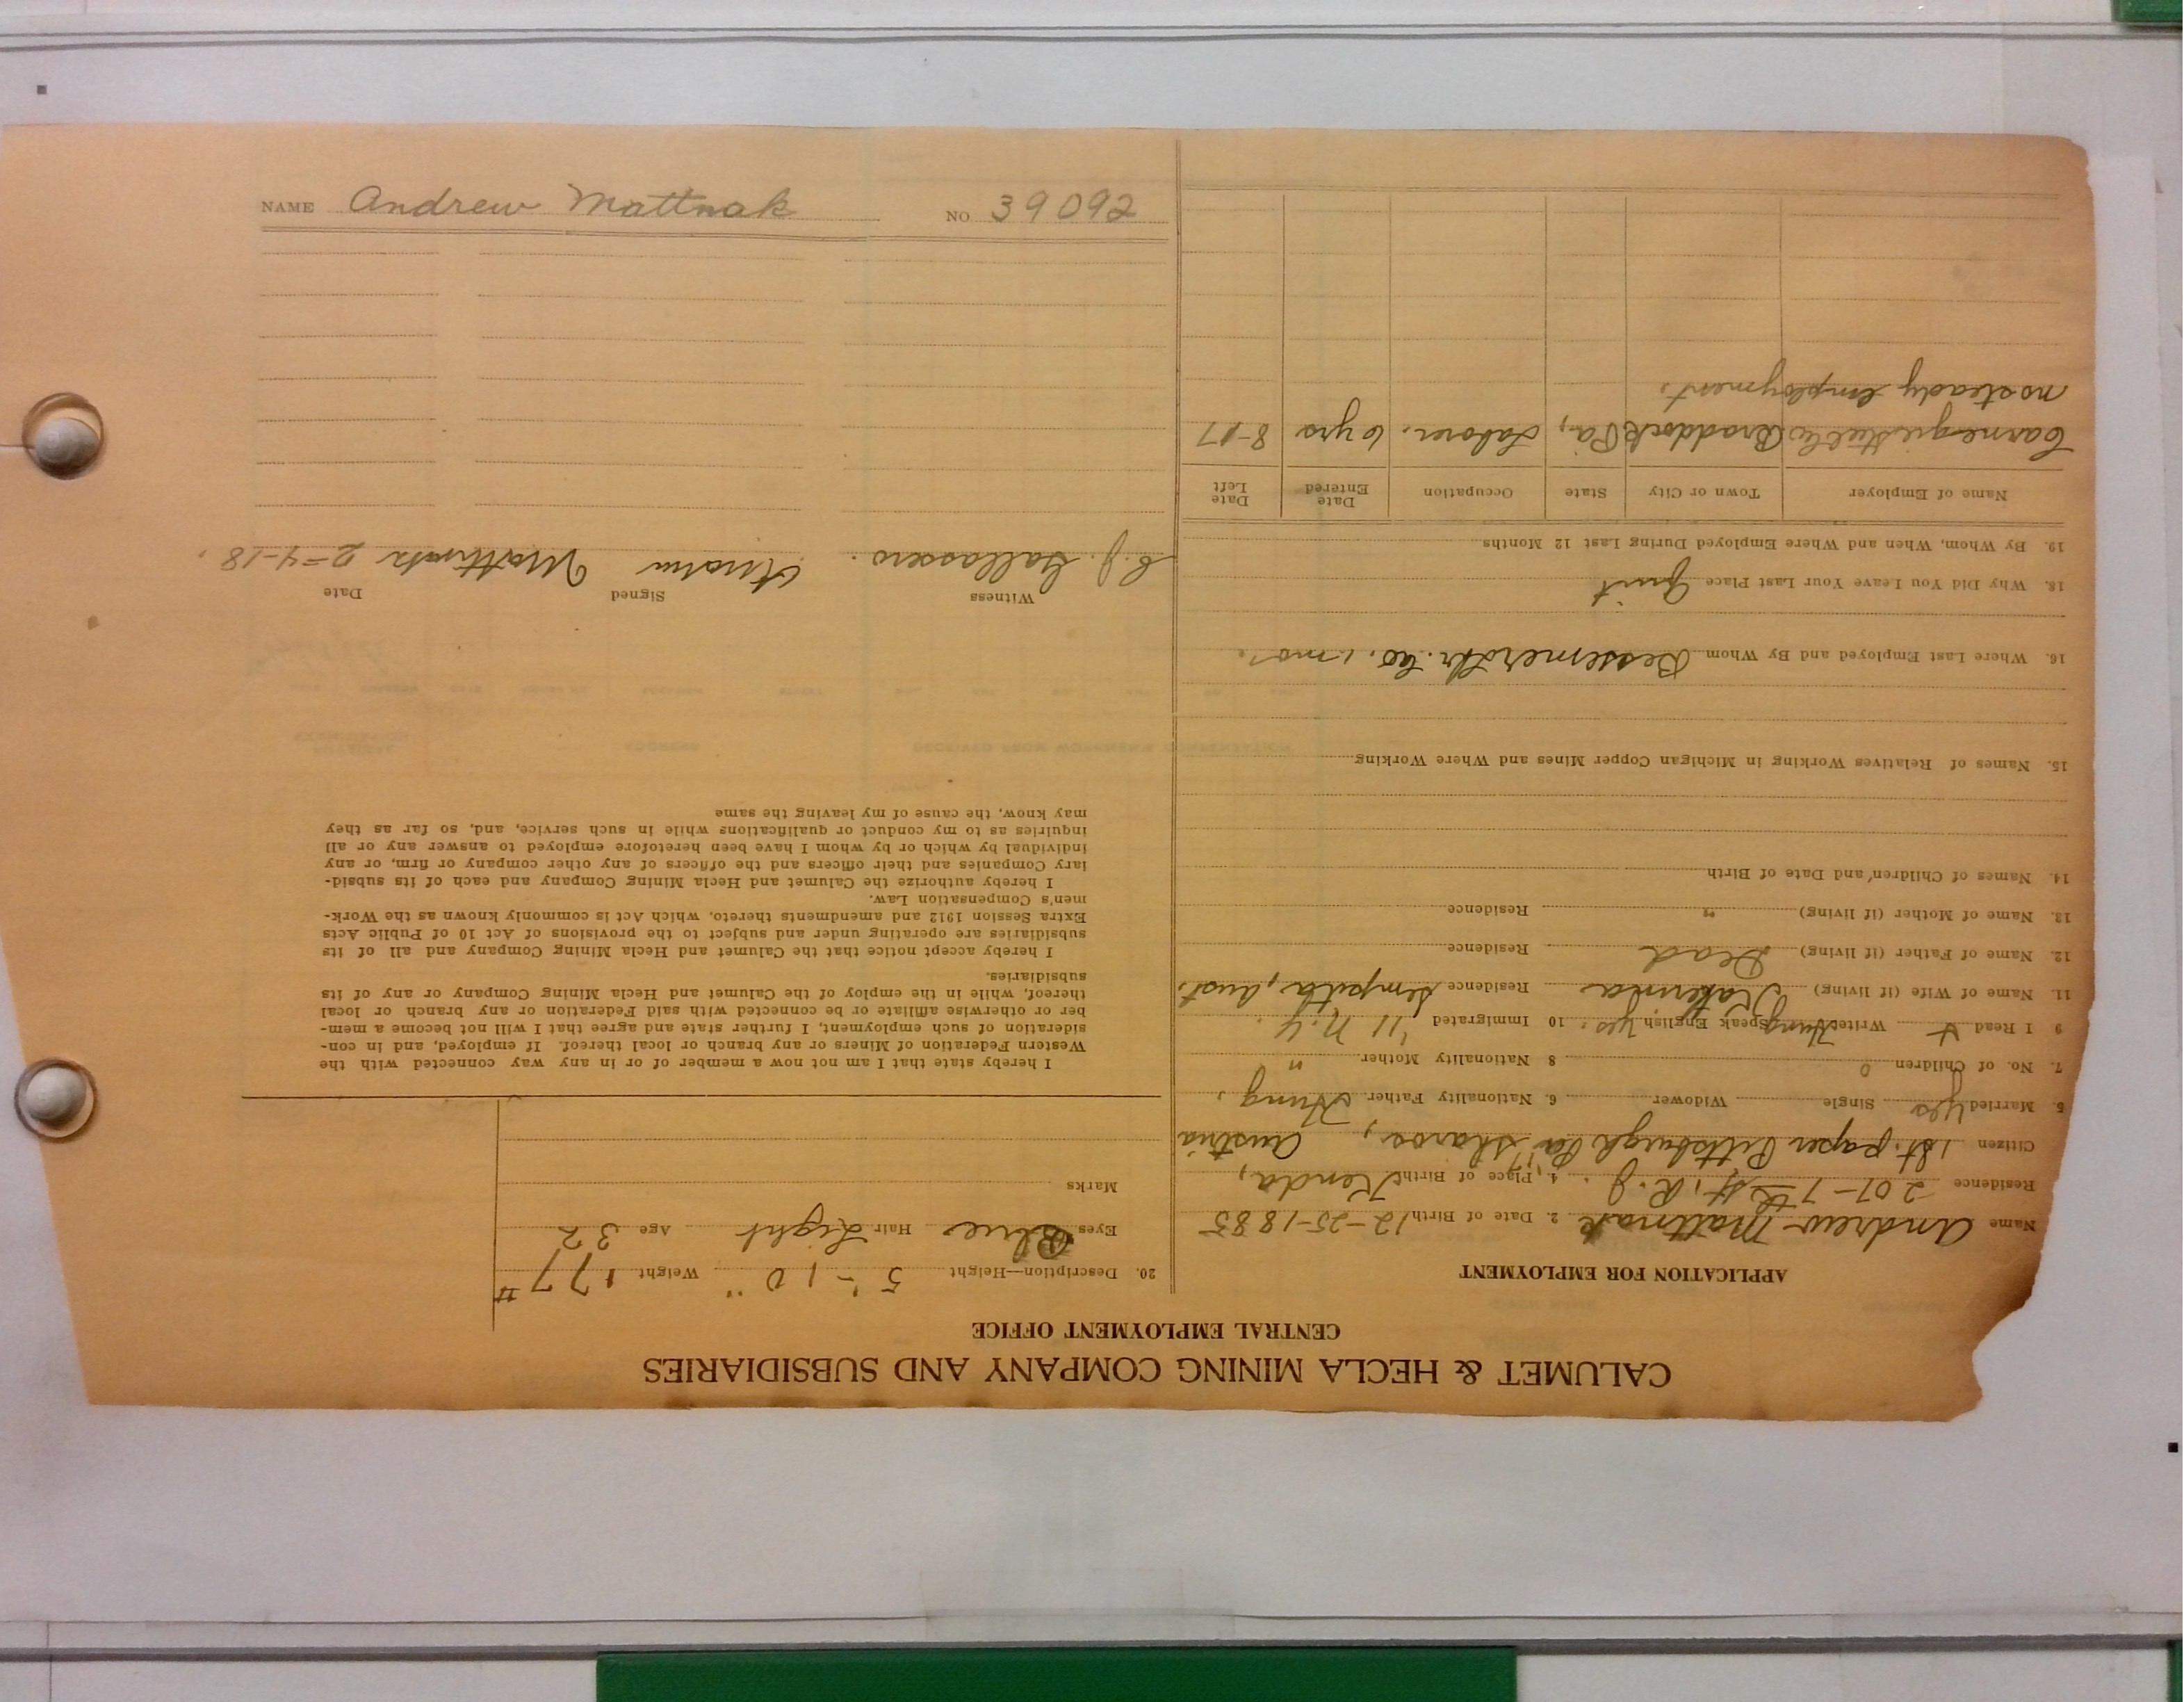 NAME Andrew Mattnak NO 39092
CALUMET & HECLA MINING COMPANY AND SUBSIDIARIES
CENTRAL EMPLOYMENT OFFICE
APPLICATION FOR EMPLOYMENT
Name Andrew Mattnak 2. Date of Birth 12-25-1885
Residence 207-7th St. R.J. 4. Place of Birth Kenda,
Citizen 1st. paper Pittsburgh Pa '17 Sharos, Austria
5. Married yes Single Widower 6. Nationality Father Hung.
7. No. of Children 0 8 Nationality Mother "
9 I Read + Write Hung Speak English yes. 10 Immigrated '11 N.Y.
11. Name of Wife (if living) Residence Aust.
12. Name of Father (if living) Dead Residence
13. Name of Mother (if living) " Residence
14. Names of Children and Date of Birth
15. Names of Relatives Working in Michigan Copper Mines and Where Working
16. Where Last Employed and By Whom Bessemer Co. 1 mo.
18. Why Did You Leave Your Last Place Quit
19. By Whom, When and Where Employed During Last 12 Months
Name of Employer Town or City State Occupation Date Entered Date Left
Carnegie Steel Co Braddock Pa, Labor. 6 yrs 8-17
no steady employment.
20. Description—Height 5'-10" Weight 177#
Eyes Blue Hair Light Age 32
Marks
I hereby state that I am not now a member of or in any way connected with the
Western Federation of Miners or any branch or local thereof. If employed, and in con-
sideration of such employment, I further state and agree that I will not become a mem-
ber or otherwise affiliate or be connected with said Federation or any branch or local
thereof, while in the employ of the Calumet and Hecla Mining Company or any of its
subsidiaries.
I hereby accept notice that the Calumet and Hecla Mining Company and all of its
subsidiaries are operating under and subject to the provisions of Act 10 of Public Acts
Extra Session 1912 and amendments thereto, which Act is commonly known as the Work-
men's Compensation Law.
I hereby authorize the Calumet and Hecla Mining Company and each of its subsid-
iary Companies and their officers and the officers of any other company or firm, or any
individual by which or by whom I have been heretofore employed to answer any or all
inquiries as to my conduct or qualifications while in such service, and, so far as they
may know, the cause of my leaving the same
Witness Signed Date
Mattnak 2-4-18.